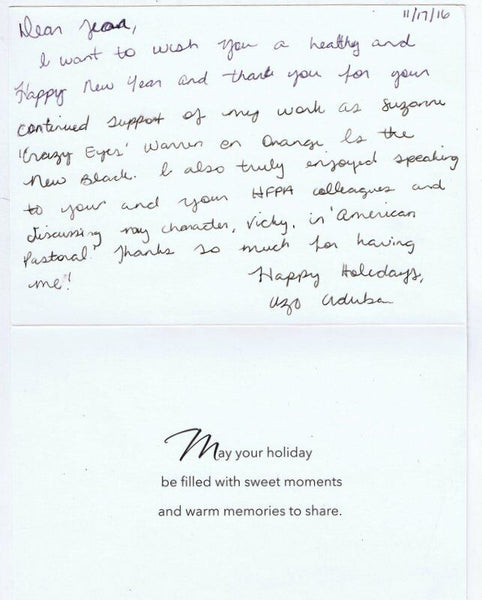 11/17/16
Dear Jean,
I want to wish you a healthy and
Happy New Year and thank you for your
continued support of my work as Suzanne
'Crazy Eyes' Warren on Orange Is the
New Black. I also truly enjoyed speaking
to your and your HFPA colleagues and
discussing my character, Vicky, in "American
Pastoral." Thanks so much for having
me!
Happy Holidays,
Uzo Aduba
May your holiday
be filled with sweet moments
and warm memories to share.